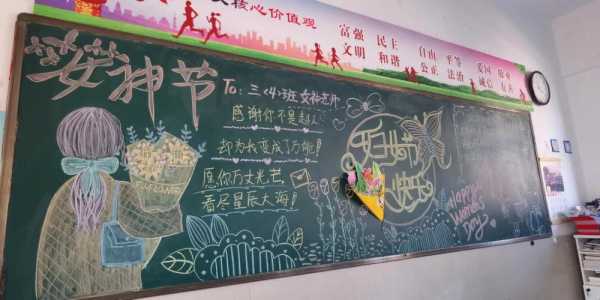 核心价值观
富强 民主
文明 和谐
自由 平等
公正 法治
爱国 敬业
诚信 友善
女神节
To: 三〈4〉班 女神老师
感谢你不是超人
却为我变成了万能!
愿你万丈光芒
看尽星辰大海!
妇女节
快乐
Happy
Women's
Day